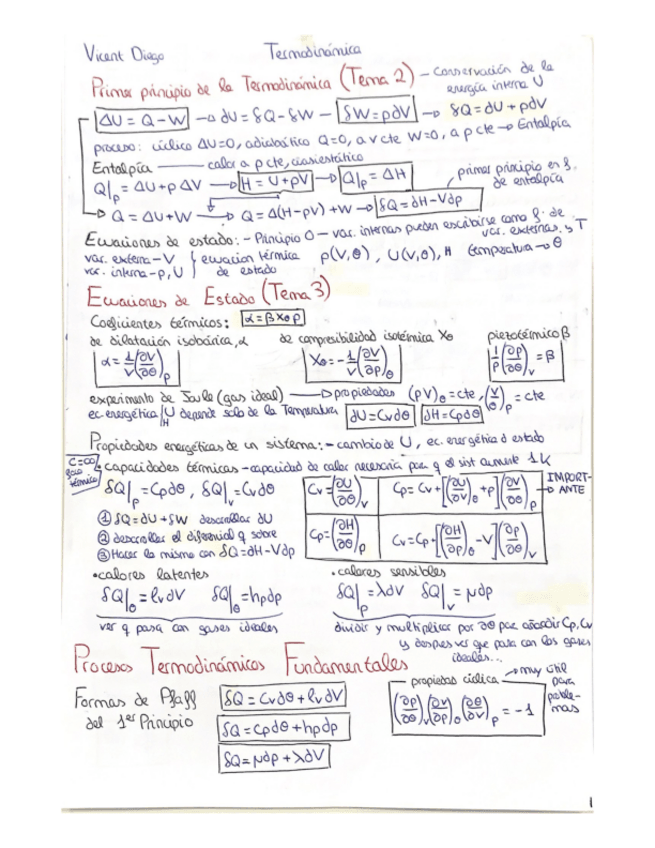 Vicent Diego Termodinámica
Primer principio de la Termodinámica (Tema 2) - Conservación de la energía interna U
ΔU = Q - W → dU = δQ - δW - δW = pdV → δQ = dU + pdV
proceso: cíclico ΔU=0, adiabático Q=0, a v cte W=0, a p cte → Entalpía
Entalpía — calor a p cte, cuasiestático
Q|p = ΔU + p ΔV → H = U + pV → Q|p = ΔH
primer principio en f. de entalpía
Q = ΔU + W → Q = Δ(H - pV) + W → δQ = dH - Vdp
Ecuaciones de estado: - Principio 0 - var. internas pueden escribirse como f. de var. externas. y T
var. externa - V
var. interna - p, U
ecuación térmica de estado
p(V,θ), U(V,θ), H temperatura → θ
Ecuaciones de Estado (Tema 3)
Coeficientes térmicos: α = β Xθ p
de dilatación isobárica, α de compresibilidad isotérmica Xθ piezotérmico β
α = 1/V (∂V/∂θ)p Xθ = - 1/V (∂V/∂p)θ 1/p (∂p/∂θ)v = β
experimento de Joule (gas ideal) → propiedades (pV)θ = cte, (V/θ)p = cte
ec. energética U/H depende solo de la Temperatura dU = Cvdθ dH = Cpdθ
Propiedades energéticas de un sistema: - cambio de U, ec. energética d estado
C=∞ foco térmico
capacidades térmicas - capacidad de calor necesaria para q el sist aumente 1K
δQ|p = Cpdθ, δQ|v = Cvdθ
Cv = (∂U/∂θ)v Cp = Cv + [(∂U/∂V)θ + p](∂V/∂θ)p
IMPORTANTE
① δQ = dU + δW desarrollar dU
② desarrollar el diferencial q sobre
③ Hacer lo mismo con δQ = dH - Vdp
Cp = (∂H/∂θ)p Cv = Cp + [(∂H/∂p)θ - V](∂p/∂θ)v
• calores latentes • calores sensibles
δQ|θ = lvdV δQ|θ = hpdp δQ|p = λdV δQ|v = μdp
ver q pasa con gases ideales dividir y multiplicar por ∂θ par añadir Cp, Cv
y despues ver que pasa con los gases ideales...
Procesos Termodinámicos Fundamentales
propiedad cíclica → muy útil para problemas
Formas de Pfaff del 1er Principio
δQ = Cvdθ + lvdV
δQ = Cpdθ + hpdp
δQ = μdp + λdV
(∂p/∂θ)v (∂V/∂p)θ (∂θ/∂V)p = -1
1